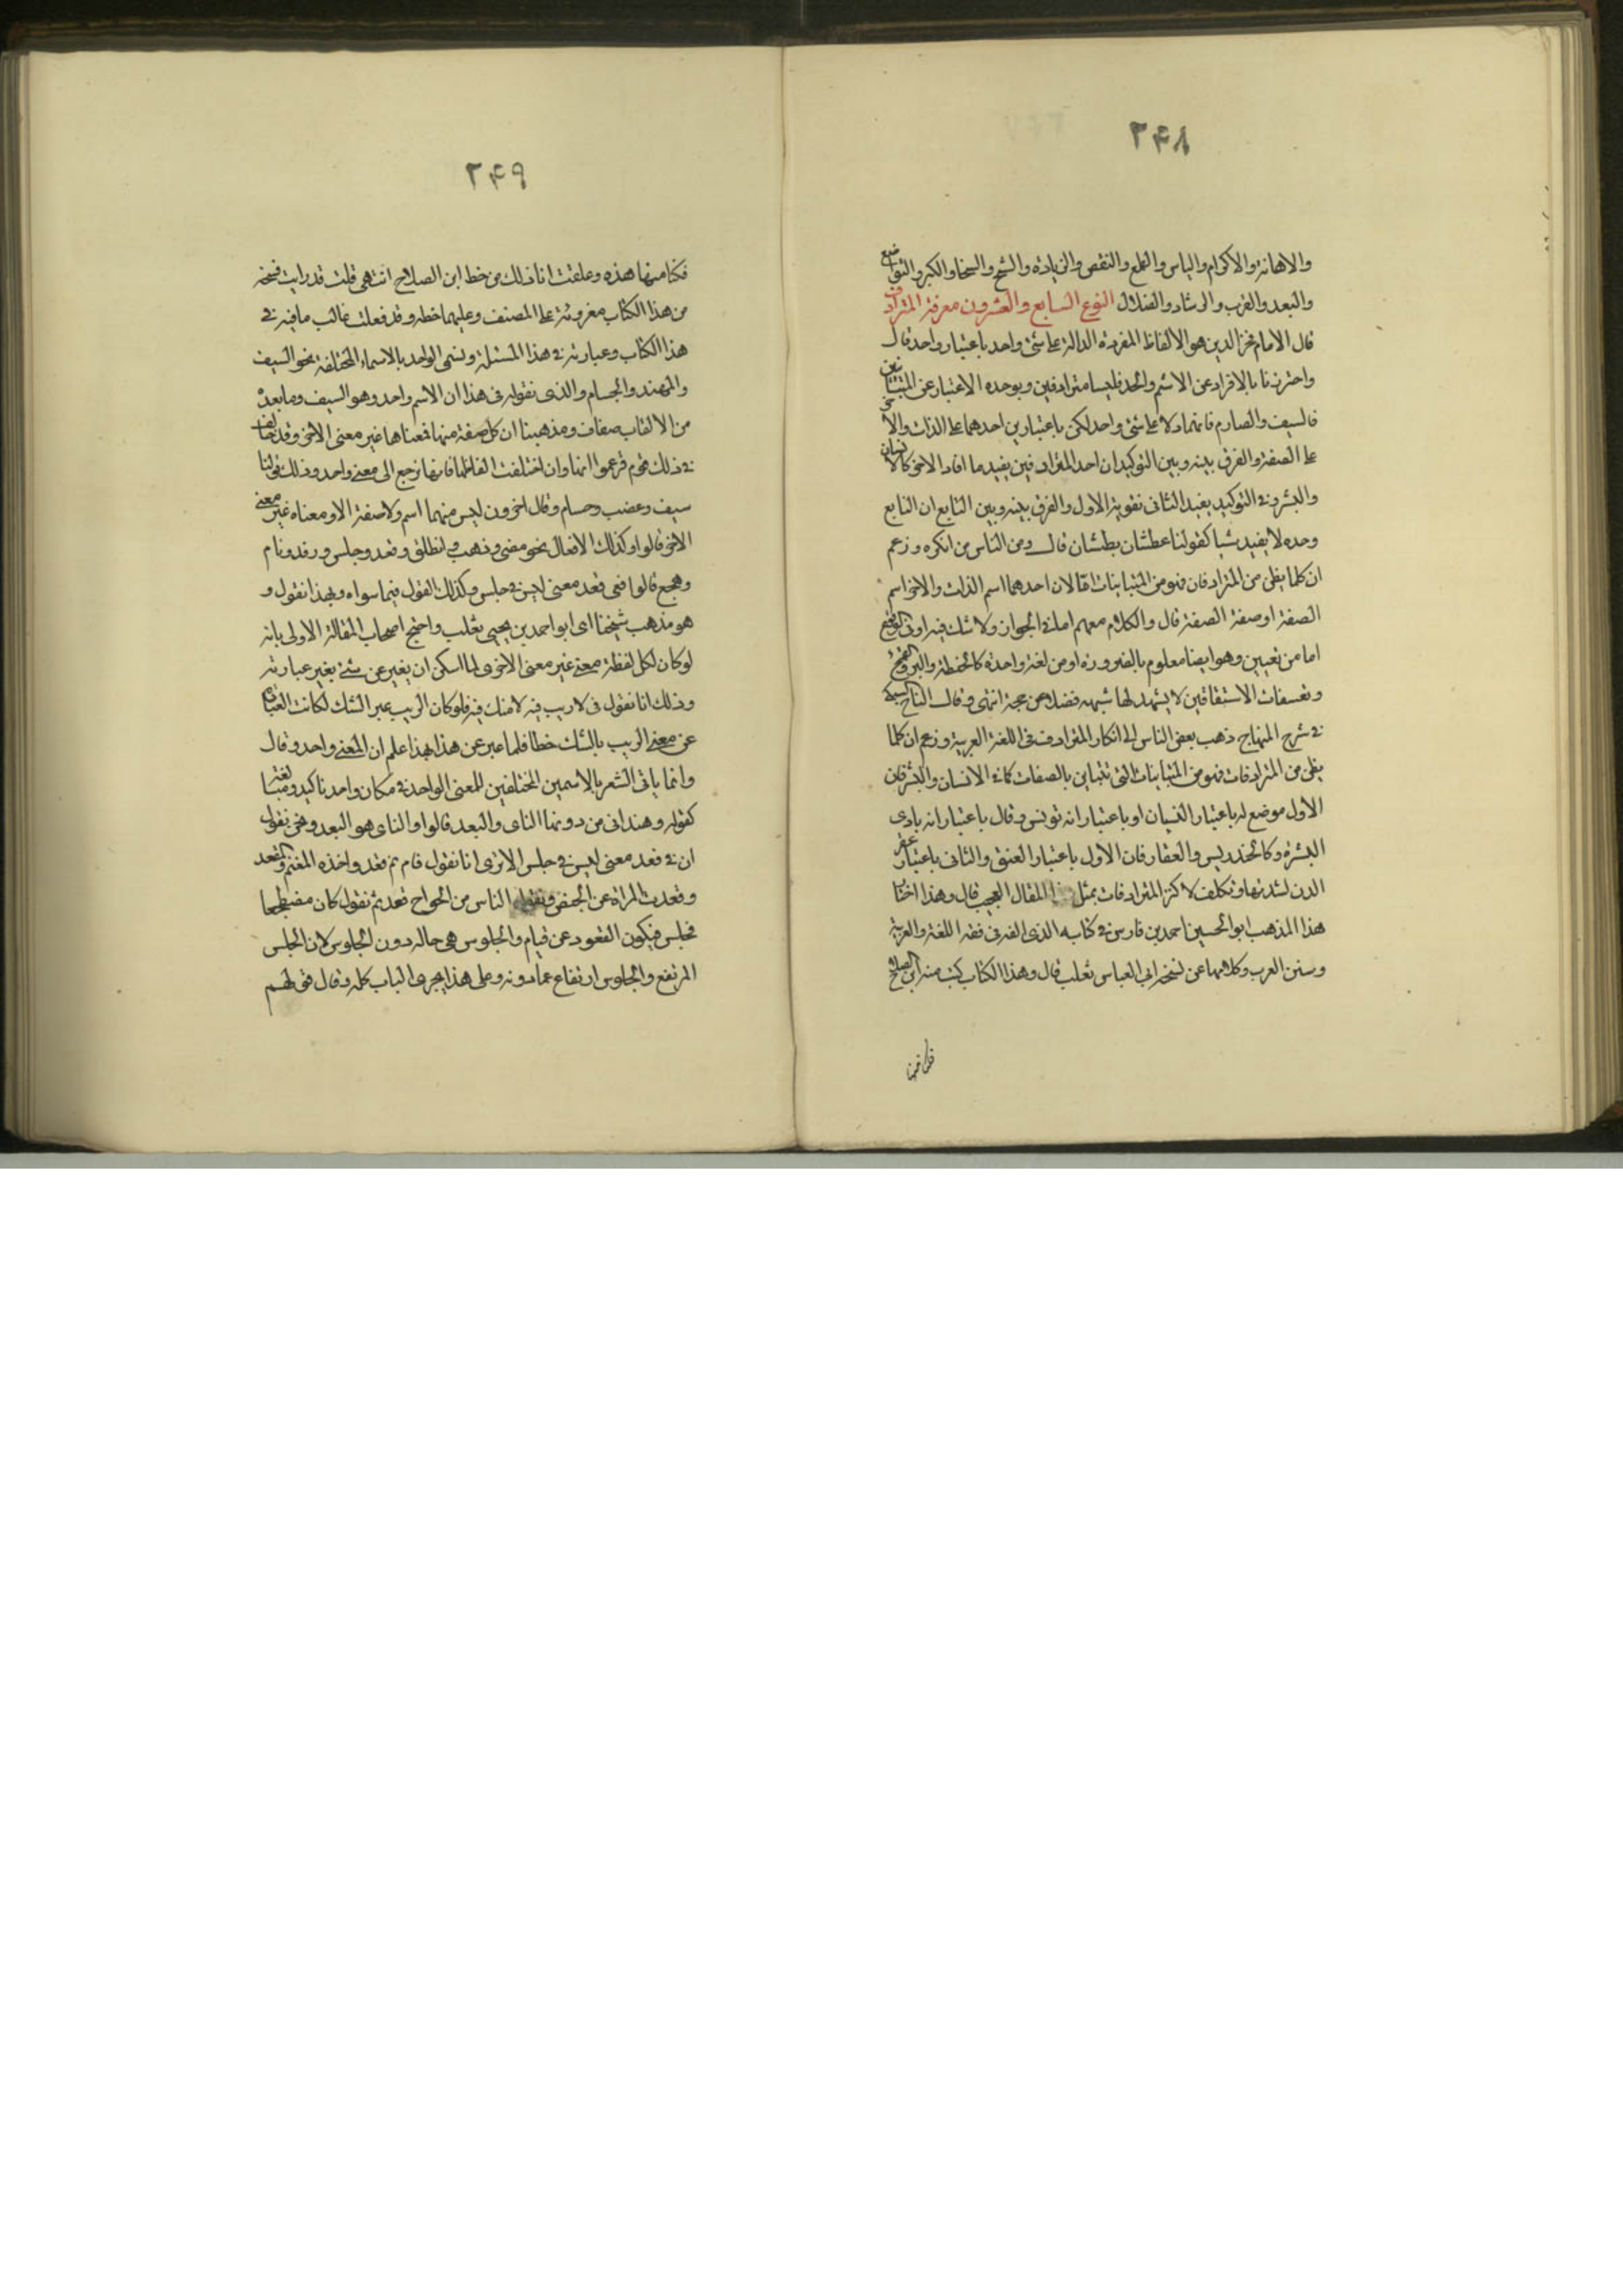 ٢٤٨
والاهانة والاكرام والياس والطمع والنقص والزيادة والشح والسخا والكبر والتواضع
والبعد والقرب والرشاد والضلال النوع السابع والعشرون معرفة المترادف
قال الامام فخر الدين هو الالفاظ المفردة الدالة على شئ واحد باعتبار واحد قال
واحترزنا بالافراد عن الاسم والحد فليسا مترادفين وبوحدة الاعتبار عن المتباينين
كالسيف والصارم فانهما دلا على شئ واحد لكن باعتبارين احدهما على الذات والاخر
على الصفة والفرق بينه وبين التوكيد ان احد المترادفين يفيد ما افاد الاخر كالانسان
والبشر وفي التوكيد يفيد الثانى تقوية الاول والفرق بينه وبين التابع ان التابع
وحده لا يفيد شيا كقولنا عطشان بطشان قال ومن الناس من انكره وزعم
ان كلما يظن من المترادفات فهو من المتباينات اما لان احدهما اسم الذات والاخر اسم
الصفة او صفة الصفة قال والكلام معهم اما في الجواز ولا شك فيه او في الوقوع
اما من لغتين وهو ايضا معلوم بالضرورة او من لغة واحدة كالحنطة والبر والقمح
وتعسفات الاشتقاقين لا يشهد لها شبهه فضلا عن حجة انتهى وقال التاج السبكى
في شرح المنهاج ذهب بعض الناس الى انكار المترادف في اللغة العربية وزعم ان كلما
يظن من المترادفات فهو من المتباينات التى تتباين بالصفات كما في الانسان والبشر فان
الاول موضع له باعتبار النسيان او باعتبار انه تونس وقال باعتبار انه بادى
البشرة وكالخندريس والعقار فان الاول باعتبار العتق والثانى باعتبار عقر
الدن لشدتها وتكلف لاكثر المترادفات بمثل هذا المقال العجيب قال وهذا اختار
هذا المذهب ابو الحسين احمد بن فارس في كتابه الذى الفه في فقه اللغة والعربية
وسنن العرب وكلامها عن شيخه ابى العباس ثعلب قال وهذا الكتاب كتب منه ابن الصلاح
٢٤٩
نكتا منها هذه وعلقت انا ذلك من خط ابن الصلاح انتهى قلت قد رايت نسخة
من هذا الكتاب مقروئة على المصنف وعليها خطه وقد نقلت غالب ما فيه في
هذا الكتاب وعبارته في هذا المسئلة ونسمى الواحد بالاسماء المختلفة نحو السيف
والمهند والحسام والذى نقوله في هذا ان الاسم واحد وهو السيف وما بعده
من الالقاب صفات ومذهبنا ان كل صفة منها فمعناها غير معنى الاخر وقد خالف
في ذلك قوم فزعموا انها وان اختلفت الفاظها فانها ترجع الى معنى واحد وذلك قولنا
سيف وعضب وحسام وقال اخرون ليس منهما اسم ولا صفة الا ومعناه غير معنى
الاخر قالوا وكذلك الافعال نحو مضى وذهب وانطلق وقعد وجلس ورقد ونام
وهجع قالوا ففى قعد معنى ليس في جلس وكذلك القول فيما سواه وبهذا نقول و
هو مذهب شيخنا ابى ابو احمد بن يحيى ثعلب واحتج اصحاب المقالة الاولى بانه
لو كان لكل لفظة معنى غير معنى الاخرى لما امكن ان يعبر عن شئ بغير عبارته
وذلك انا نقول في لا ريب فيه لا شك فيه فلو كان الريب غير الشك لكانت العبارة
عن معنى الريب بالشك خطا فلما عبر عن هذا بهذا علم ان المعنى واحد وقال
وانما ياتى الشعر بالاسمين المختلفين للمعنى الواحد في مكان واحد تاكيد ومبالغة
كقوله وهند اتى من دونها الناى والبعد قالوا والناى هو البعد ونحن نقول
ان في قعد معنى ليس في جلس الا ترى انا نقول قام ثم قعد واخذه المقيم والمقعد
وقعدت المراة عن الحيض ونقول الناس من الخوارج قعد ثم نقول كان مضطجعا
فجلس فيكون القعود عن قيام والجلوس هى حالة دون الجلوس لان الجلس
المرتفع والجلوس ارتفاع عما دونه وعلى هذا يجرى الباب كله وقال قولهم
نكتا منها